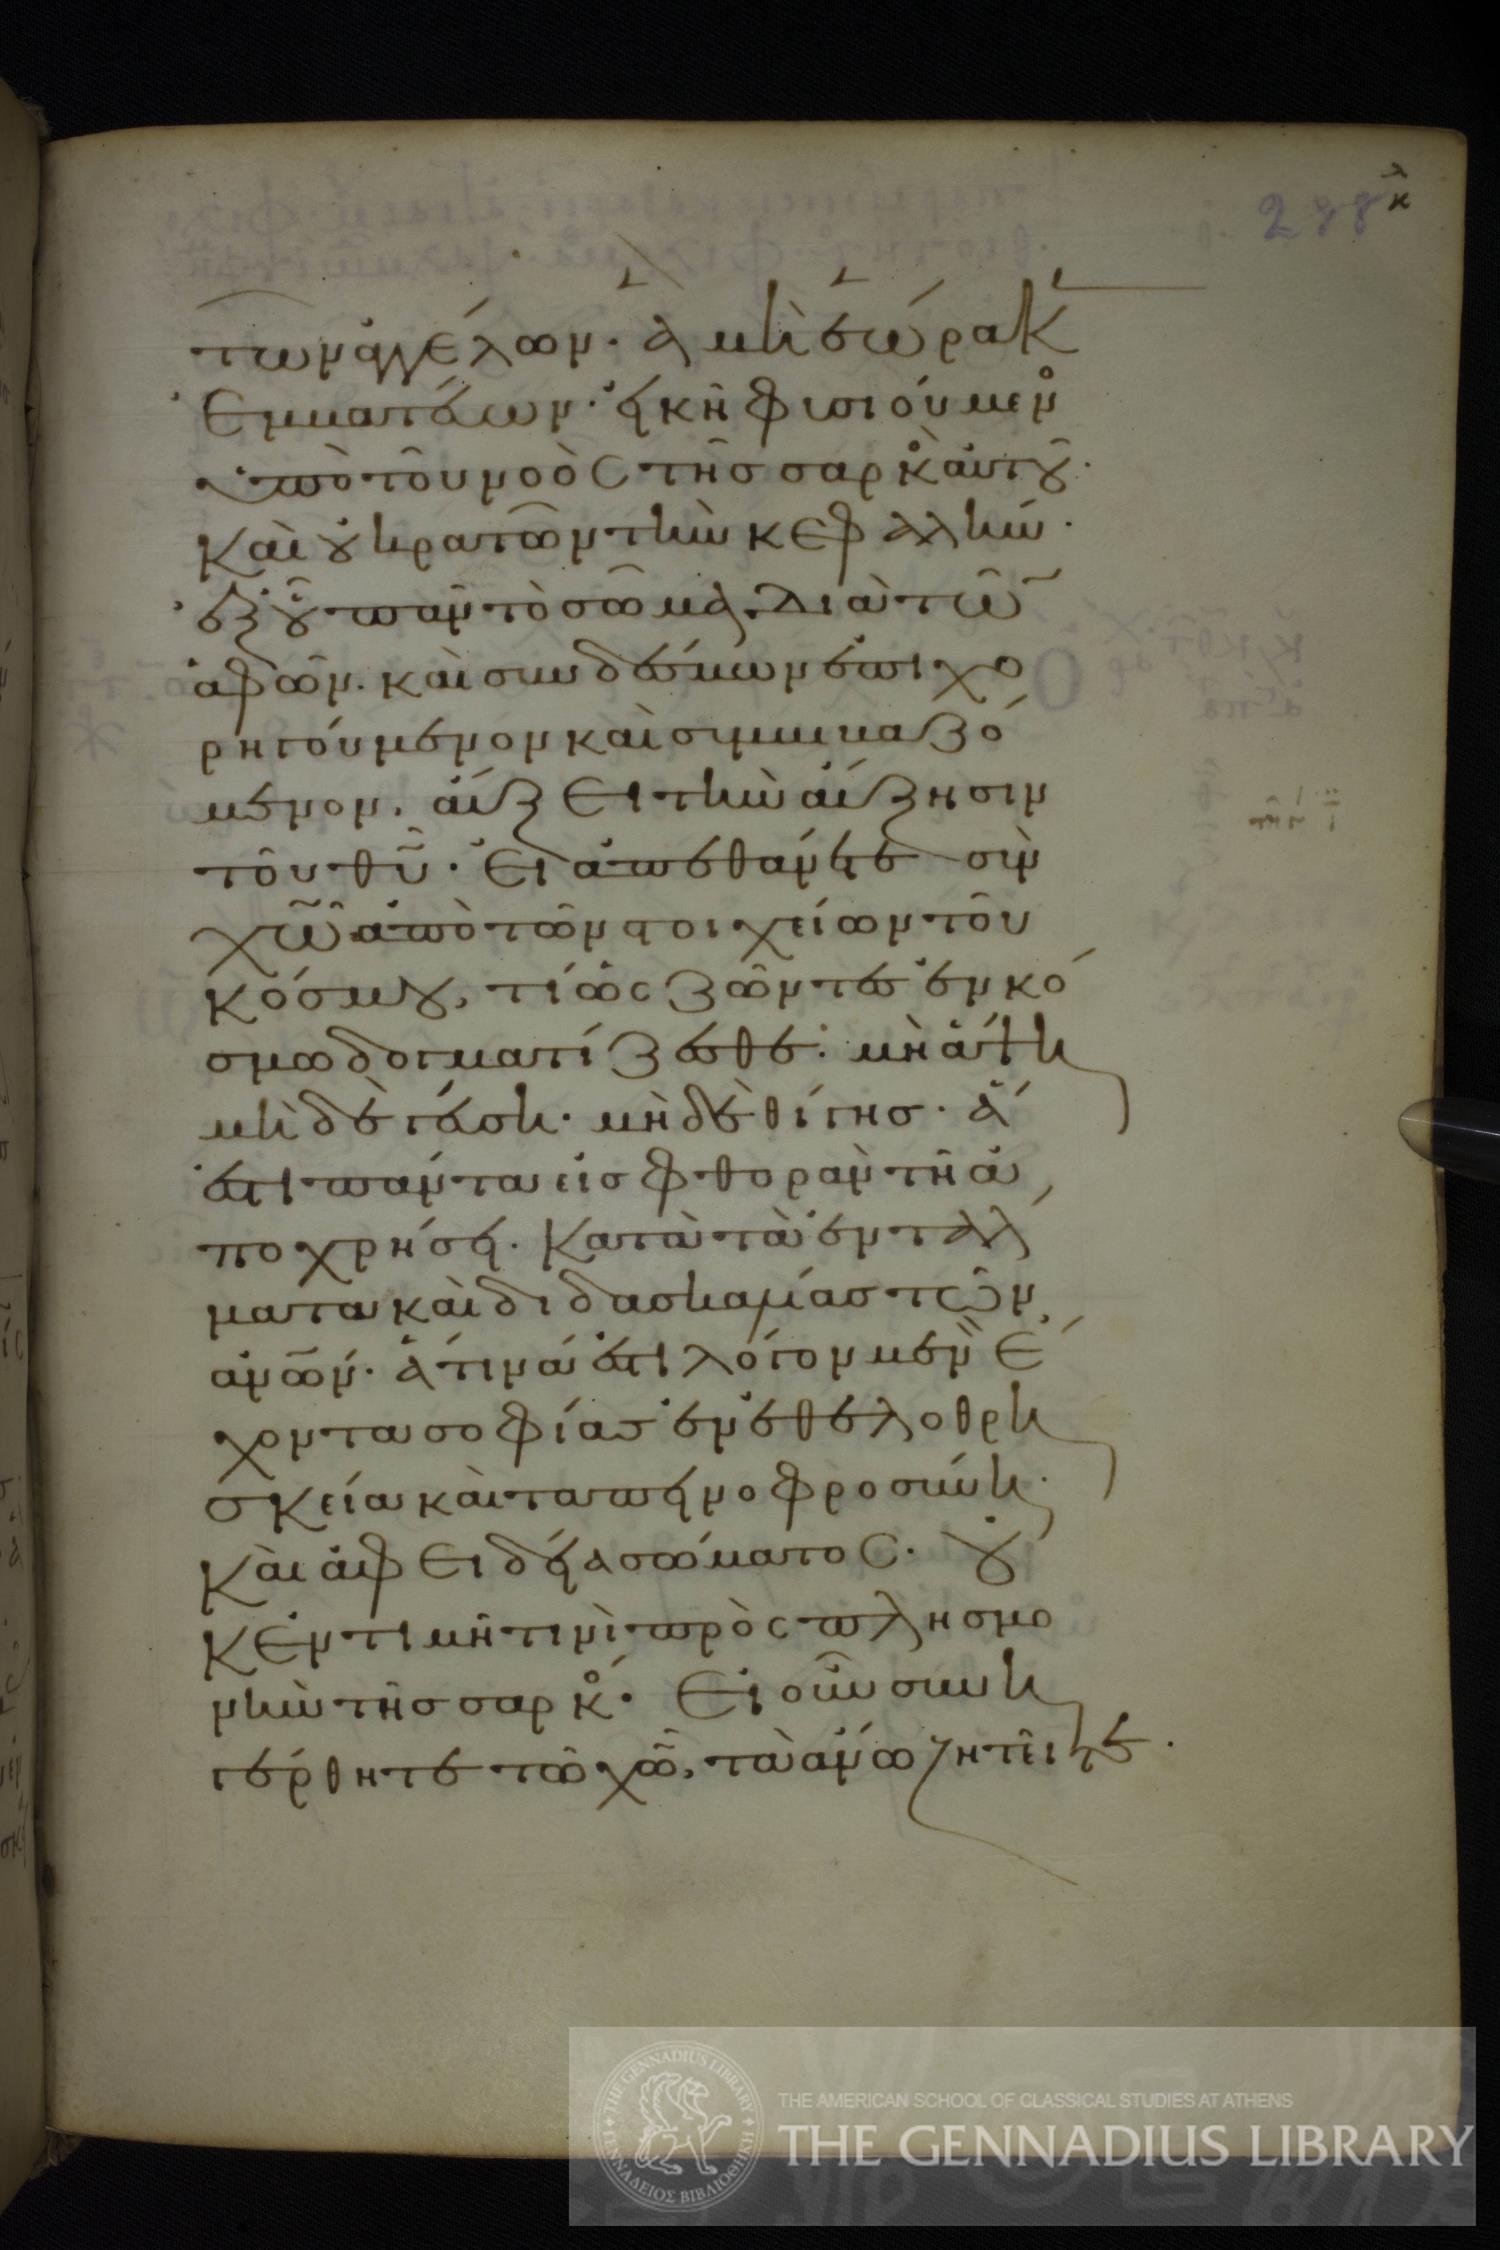 288
κ
τῶν ἀγγέλων· ἃ μὴ ἑώρακ
ἐμβατεύων· εἰκῆ φυσιούμεν
ὑπὸ τοῦ νοὸς τῆς σαρκ αὐτοῦ·
καὶ οὐ κρατῶν τὴν κεφαλήν·
ἐξ οὗ πᾶν τὸ σῶμα, διὰ τῶ
ἁφῶν· καὶ συνδέσμων ἐπιχο
ρηγούμενον καὶ συμβιβαζό
μενον, αὔξει τὴν αὔξησιν
τοῦ θυ· Εἰ ἀπεθάνετε σὺν
χω ἀπὸ τῶν στοιχείων τοῦ
κόσμου, τί ὡς ζῶντες ἐν κό
σμω δογματίζεσθε· μὴ ἅψη
μὴ δὲ γεύση· μὴ δὲ θίγης· ἅ
ἐστι πάντα εἰς φθορὰν τῆ ἀ
ποχρήσει· Κατὰ τὰ ἐντάλ
ματα καὶ διδασκαλίας τῶν
ανων· ἅτινά ἐστι λόγον μὲν ἔ
χοντα σοφίας ἐν ἐθελοθρη
σκεία καὶ ταπεινοφροσύνη·
καὶ ἀφειδεία σώματος· οὐ
κ ἐν τιμῆ τινὶ πρὸς πλησμο
νὴν τῆς σαρκ· Εἰ οὖν συνη
γέρθητε τῶ χω, τὰ ἄνω ζητεῖτε·
THE GENNADIUS LIBRARY
ΓΕΝΝΑΔΕΙΟΣ ΒΙΒΛΙΟΘΗΚΗ
THE AMERICAN SCHOOL OF CLASSICAL STUDIES AT ATHENS
THE GENNADIUS LIBRARY